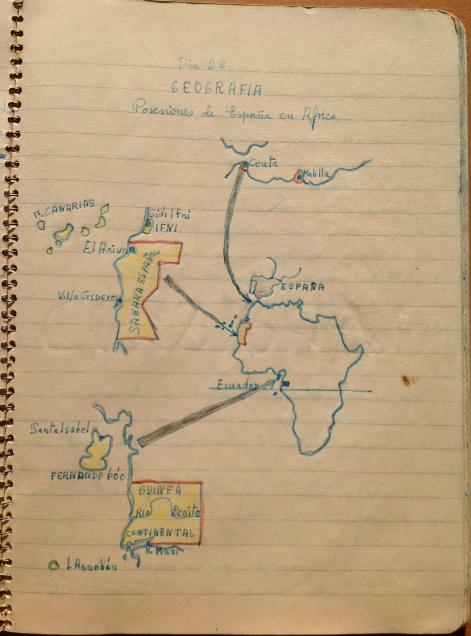 Dia 26
GEOGRAFIA
Posesiones de España en Africa
Ceuta
Melilla
Is. CANARIAS
Sidi Ifni
IFNI
El Aaiun
SAHARA ESPAÑOL
Villa Cisneros
ESPAÑA
Ecuador
Santa Isabel
FERNANDO PÓO
GUINEA
Rio Benito
CONTINENTAL
R. Muni
I. Annobón